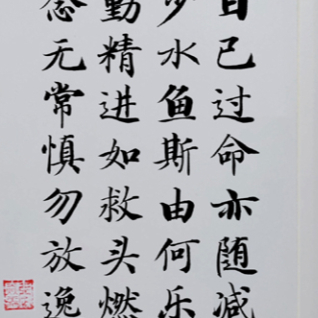 日已过命亦随减
少水鱼斯由何乐
勤精进如救头燃
念无常慎勿放逸